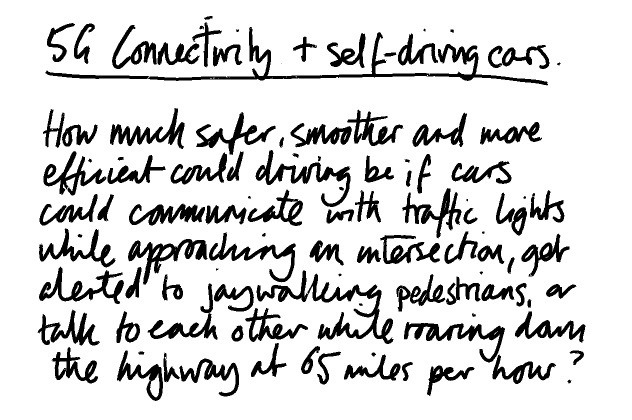 5G Connectivity + self-driving cars.
How much safer, smoother and more
efficient could driving be if cars
could communicate with traffic lights
while approaching an intersection, get
alerted to jaywalking pedestrians, or
talk to each other while roaring down
the highway at 65 miles per hour?